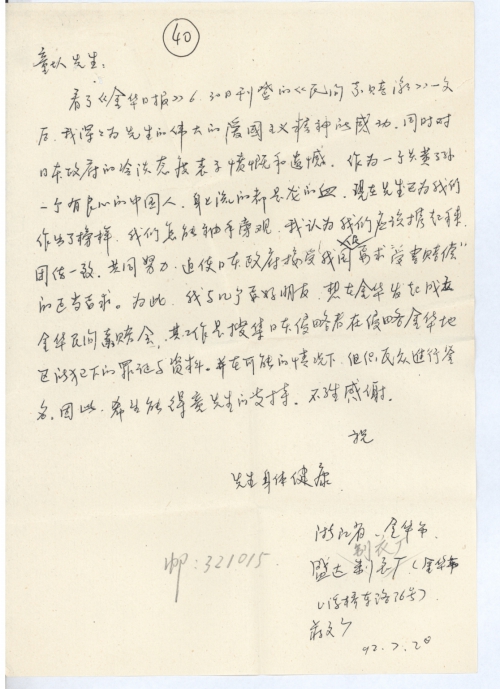 40
童增先生：
看了《金华日报》6.30日刊登的《民间索赔潮》一文
后，我深深为先生的伟大的爱国主义精神所感动，同时对
日本政府的冷淡态度表示愤慨和遗憾。作为一个炎黄子孙
一个有良心的中国人，身上流的都是龙的血，现在先生已为我们
作出了榜样，我们怎能袖手旁观，我认为我们应该携起手来
团结一致，共同努力，迫使日本政府接受"我国要求受害赔偿"
民间
的正当要求。为此，我与几个要好朋友，想在金华发起成立
金华民间索赔会，其工作是搜集日本侵略者在侵略金华地
区所犯下的罪证与资料。并在可能的情况下，组织民众进行签
名。因此，希望能得童先生的支持。不胜感谢。
祝
先生身体健康
浙江省金华市
制衣厂
盛达制衣厂（金华市
（浮桥东路76号）
邮：321015
92.7.20